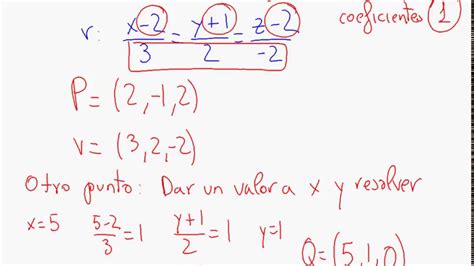 coeficientes 1
r: x-2/3 = y+1/2 = z-2/-2
P = (2,-1,2)
v = (3,2,-2)
Otro punto: Dar un valor a x y resolver
x=5 5-2/3 = 1 y+1/2 = 1 y=1
Q = (5,1,0)